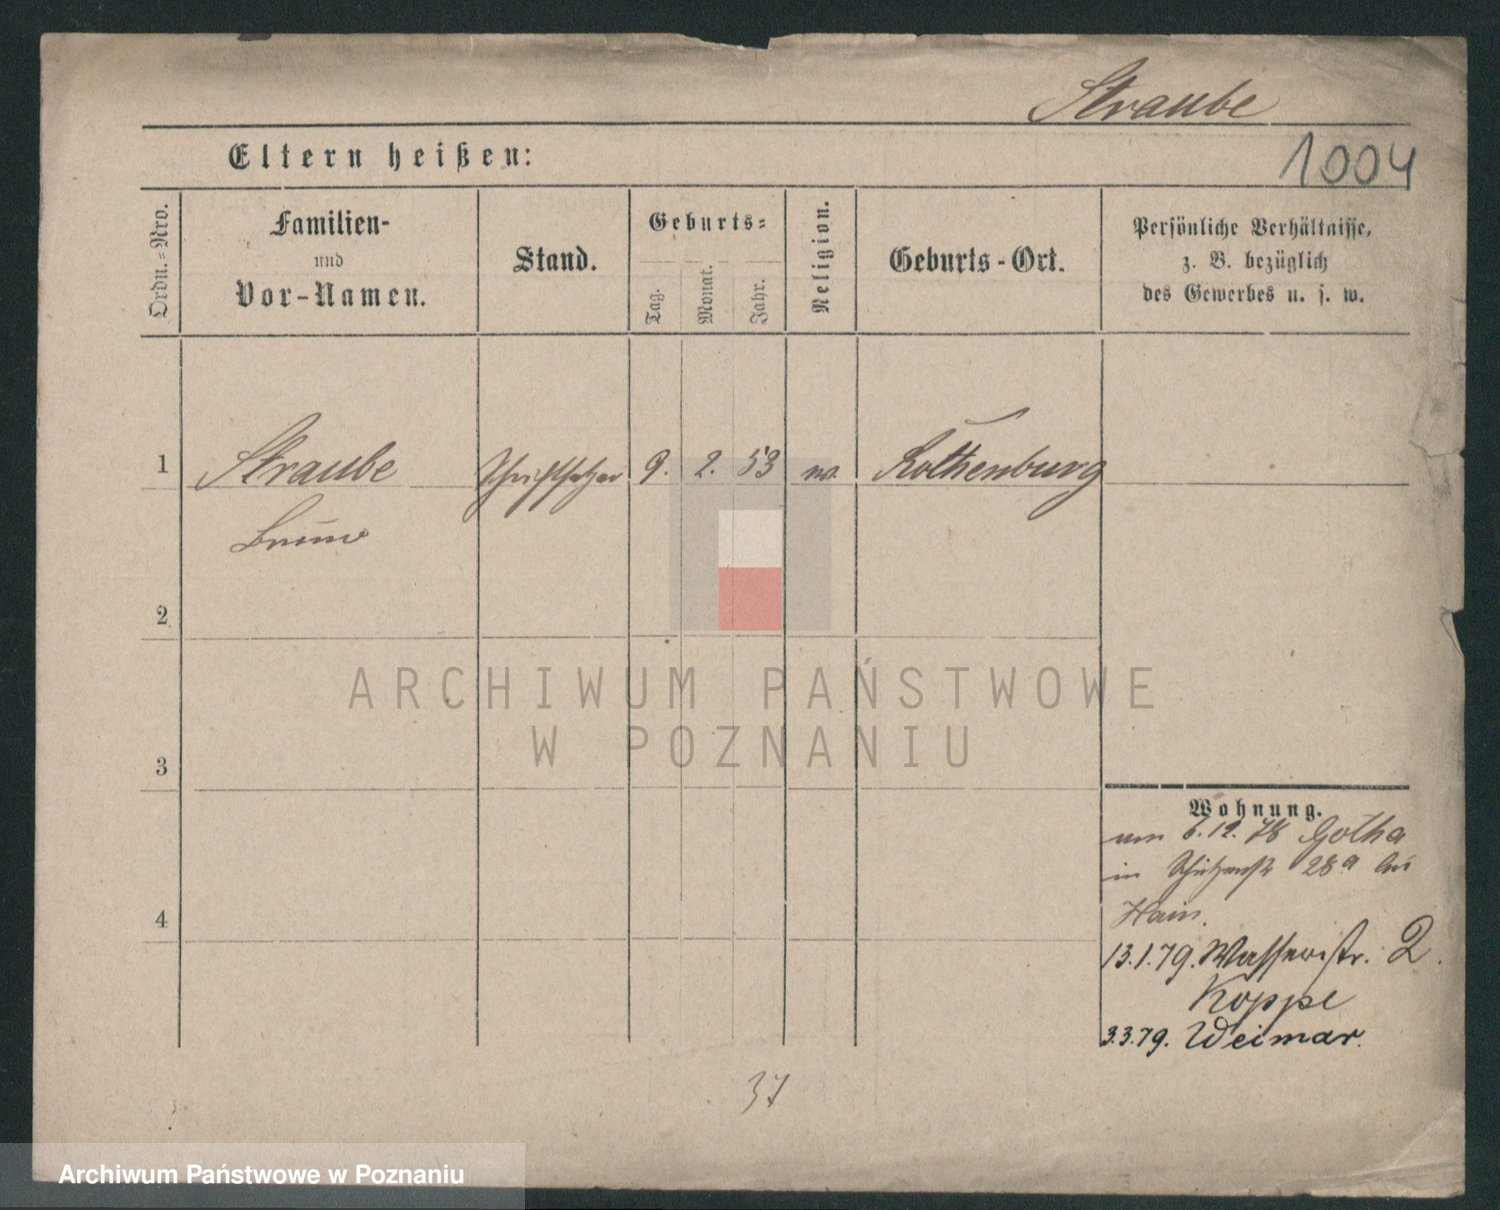 Straube
1004
Eltern heißen:
Ordn.-Nro.
Familien-
und
Vor-Namen.
Stand.
Geburts-
Tag.
Monat.
Jahr.
Religion.
Geburts-Ort.
Persönliche Verhältnisse,
z. B. bezüglich
des Gewerbes u. s. w.
1 Straube Schriftsetzer 9. 2. 53 Rothenburg
Bruno
2
3
4
ARCHIWUM PAŃSTWOWE
W POZNANIU
Wohnung.
6.12.78 Gotha
in Schützenstr 28a bei
Hain.
13.1.79. Wasserstr. 2.
Koppe
3.3.79. Weimar.
37
Archiwum Państwowe w Poznaniu